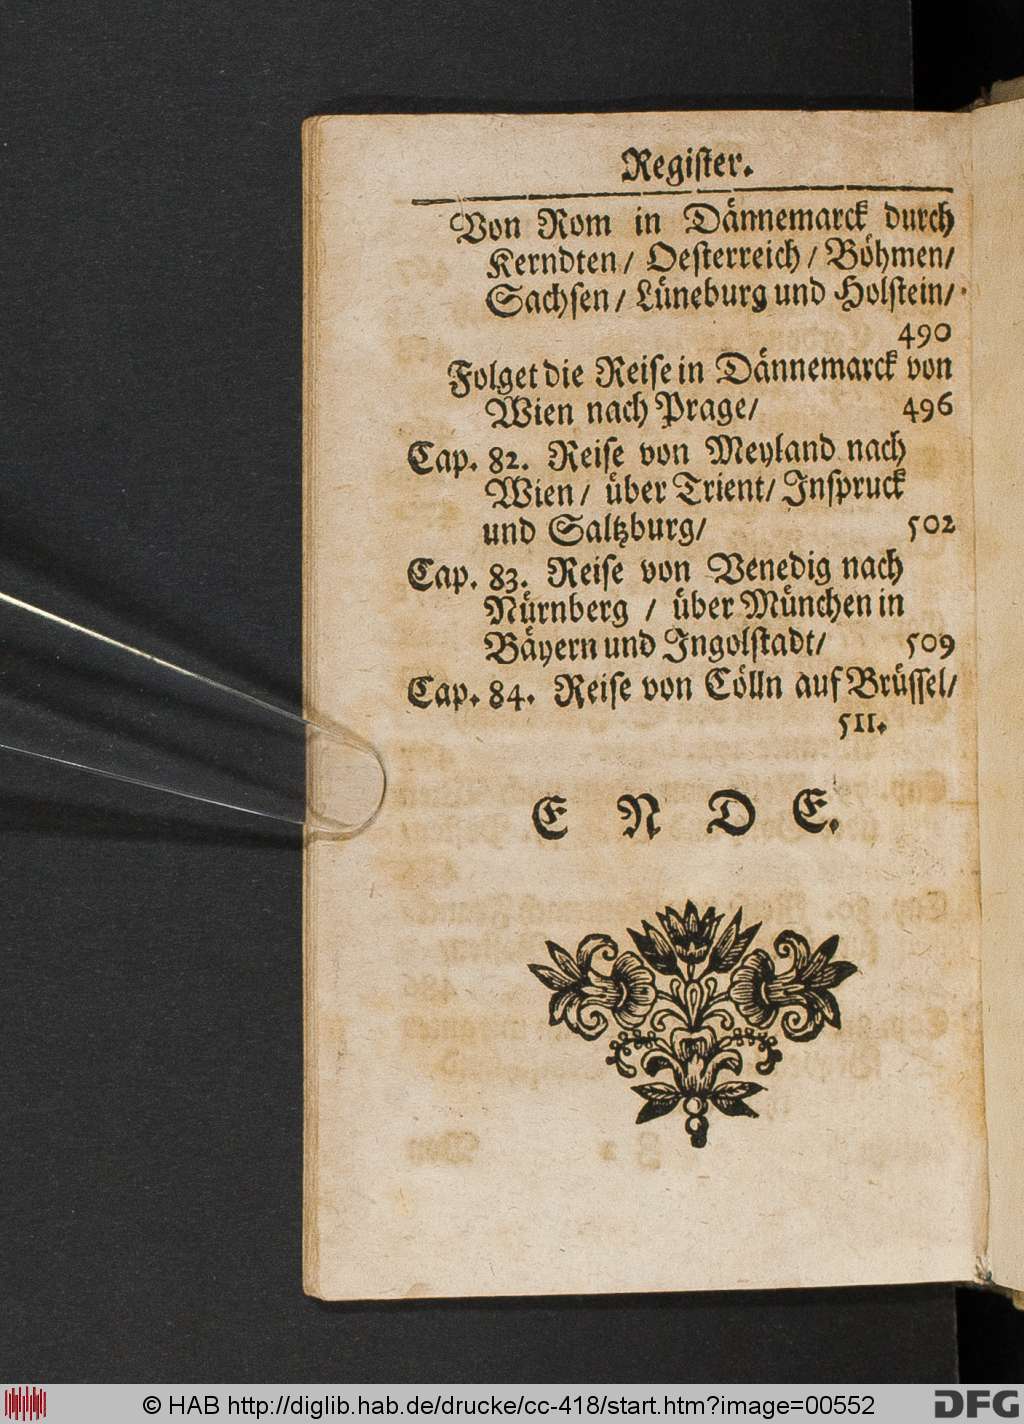 Register.
Von Rom in Dännemarck durch
Kerndten/ Oesterreich/ Böhmen/
Sachsen/ Lüneburg und Holstein/
490
Folget die Reise in Dännemarck von
Wien nach Prage/ 496
Cap. 82. Reise von Meyland nach
Wien/ über Trient/ Inspruck
und Saltzburg/ 502
Cap. 83. Reise von Venedig nach
Nürnberg / über München in
Bäyern und Ingolstadt/ 509
Cap. 84. Reise von Cölln auf Brüssel/
511.
E N D E.
© HAB http://diglib.hab.de/drucke/cc-418/start.htm?image=00552
DFG